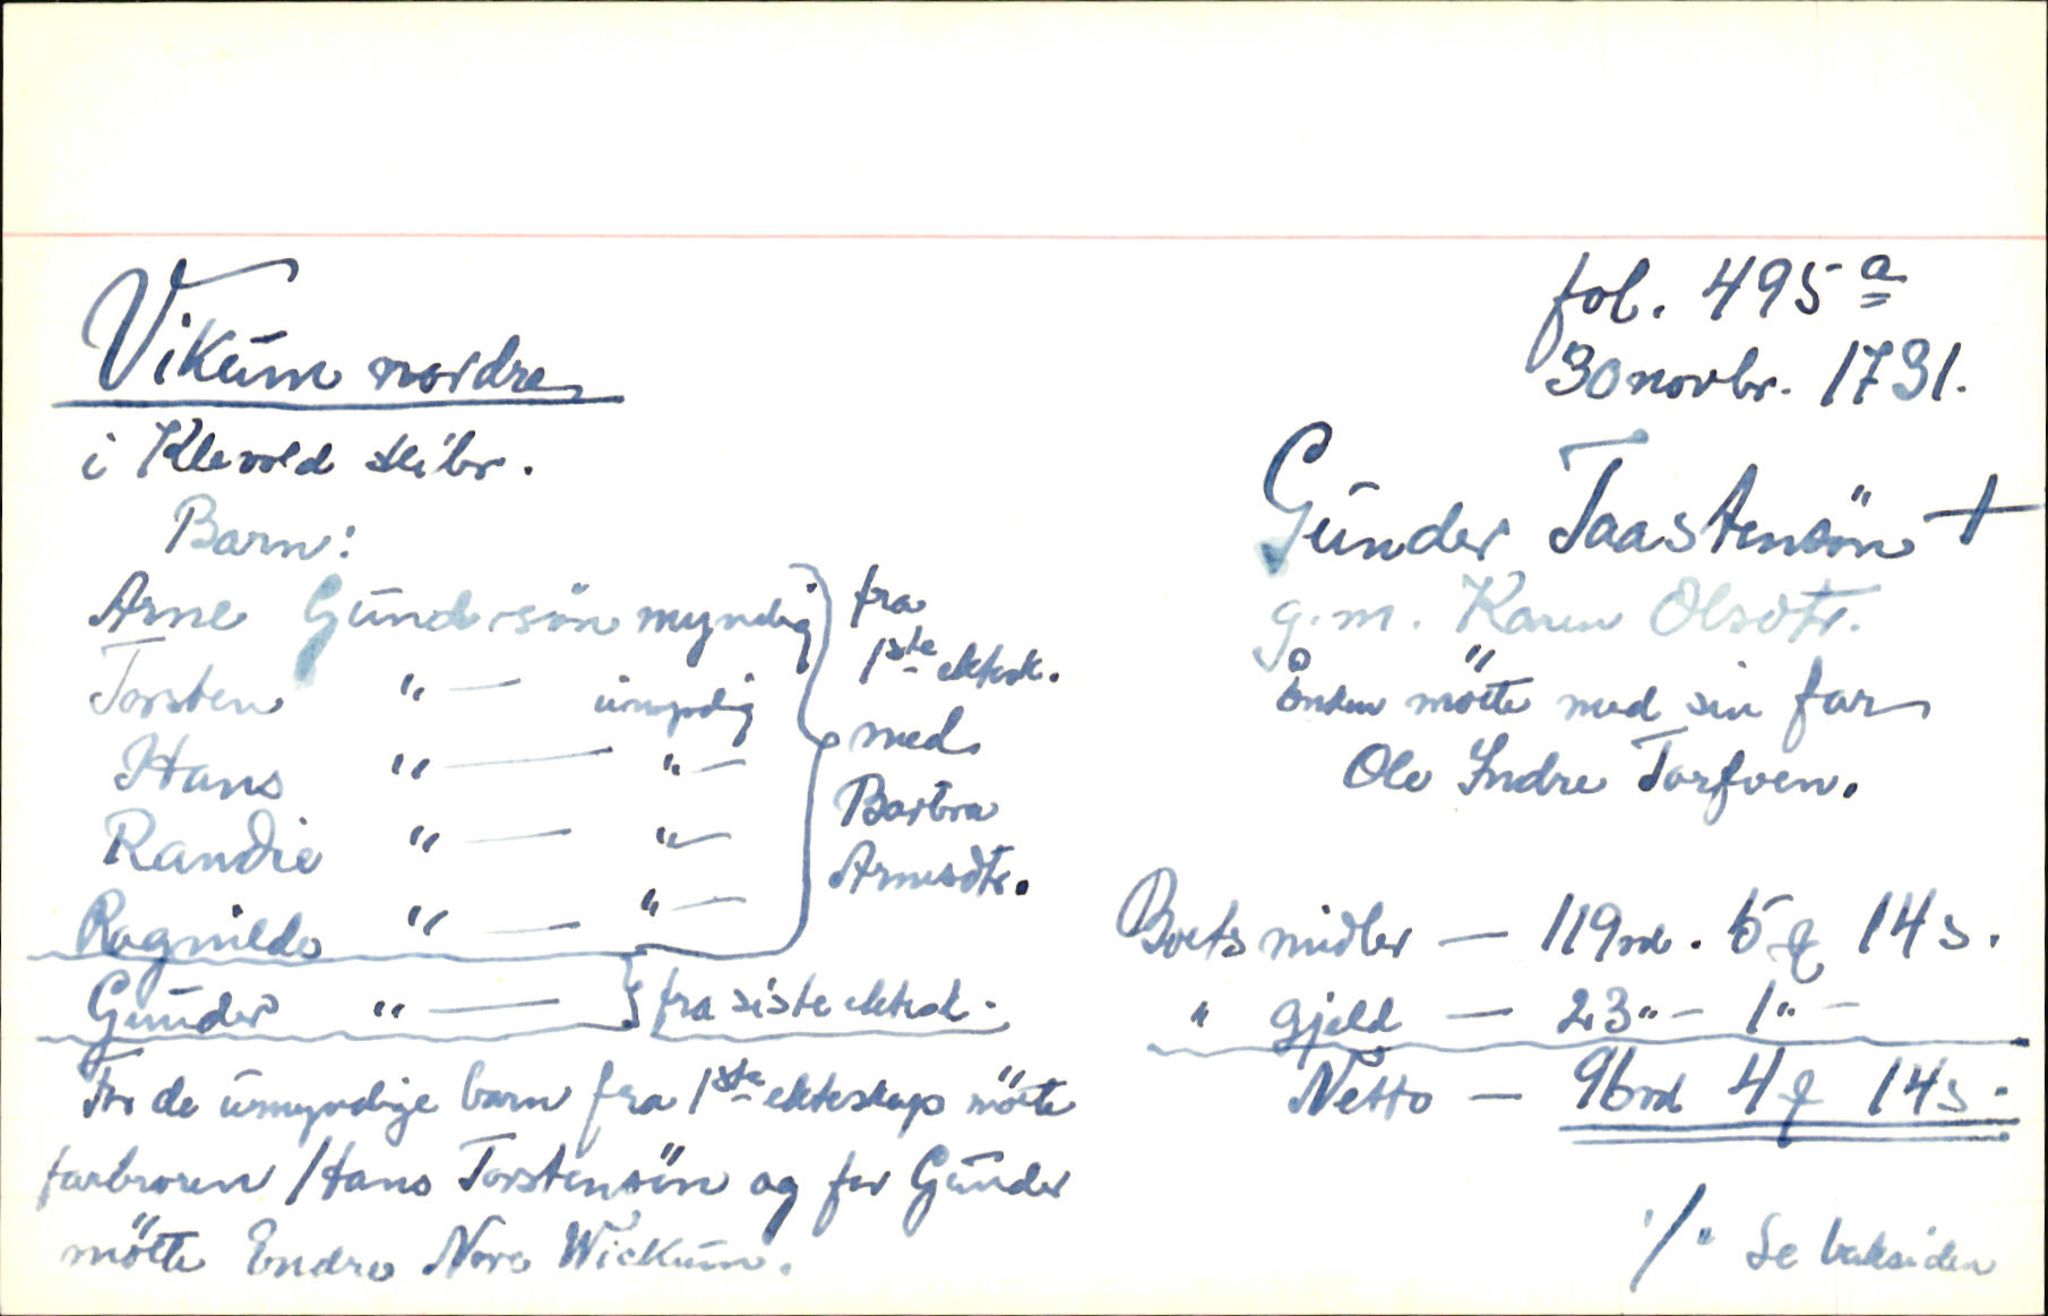 Vikūm nordre
i Klevold skibr.
Barn:
Arne Gūndersön myndig
Torsten " — ūmyndig
Hans " — " —
Randie " — " —
Ragnilde " — " —
fra
1ste ektesk.
med
Barbra
Arnesdtr.
Gūnder " — fra siste ektesk.
For de ūmyndige barn fra 1ste ekteskap mötte
farbroren Hans Torstensön og for Gūnder
mötte Endre Nore Wickūm.
fol. 495 a
30 novbr. 1731.
Gūnder Taastensön +
g.m. Karen Olsdtr.
Enken mötte med sin far
Ole Indre Torfven.
Boets midler — 119 rd. 5 q 14 s.
" gjeld — 23 " — 1 " —
Netto — 96 rd 4 q 14 s.
·/. Se baksiden